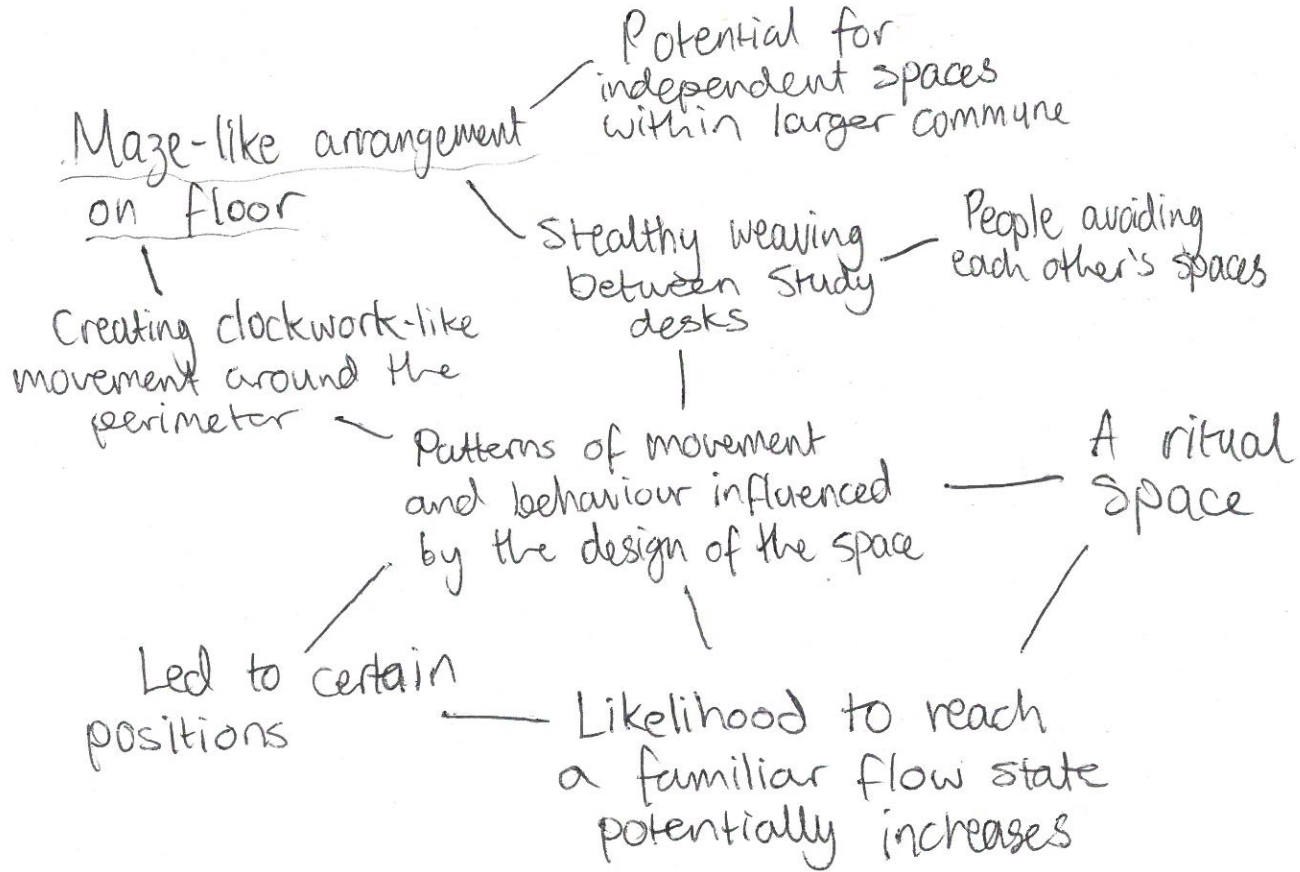 Potential for
independent spaces
within larger commune
Maze-like arrangement
on floor
Stealthy weaving
between study
desks
People avoiding
each other's spaces
Creating clockwork-like
movement around the
perimeter
Patterns of movement
and behaviour influenced
by the design of the space
A ritual
space
Led to certain
positions
Likelihood to reach
a familiar flow state
potentially increases